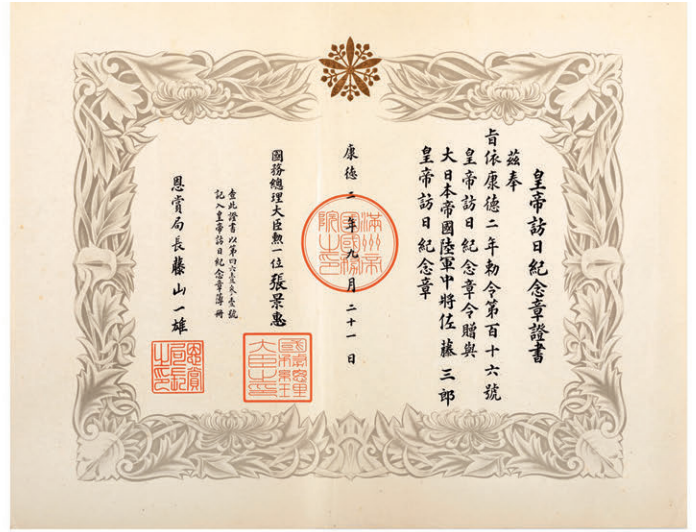 皇帝訪日紀念章證書
茲奉
旨依康德二年勅令第百十六號
皇帝訪日紀念章令贈與
大日本帝國陸軍中將佐藤三郎
皇帝訪日紀念章
康德二年九月二十一日
滿州帝
國國務
院之印
國務總理大臣勲一位張景惠
查此證書以第四六壹號
記入皇帝訪日紀念章簿冊
恩賞局長藤山一雄
恩賞
局長
之印